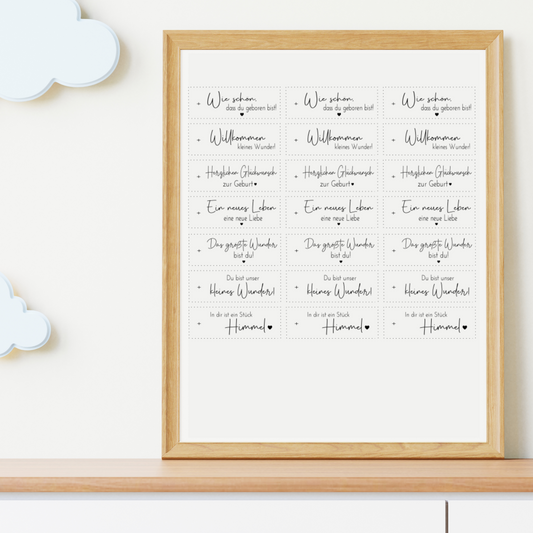 Wie schön,
dass du geboren bist!
Wie schön,
dass du geboren bist!
Wie schön,
dass du geboren bist!
Willkommen
kleines Wunder!
Willkommen
kleines Wunder!
Willkommen
kleines Wunder!
Herzlichen Glückwunsch
zur Geburt ♥
Herzlichen Glückwunsch
zur Geburt ♥
Herzlichen Glückwunsch
zur Geburt ♥
Ein neues Leben
eine neue Liebe
Ein neues Leben
eine neue Liebe
Ein neues Leben
eine neue Liebe
Das größte Wunder
bist du!
Das größte Wunder
bist du!
Das größte Wunder
bist du!
Du bist unser
kleines Wunder!
Du bist unser
kleines Wunder!
Du bist unser
kleines Wunder!
In dir ist ein Stück
Himmel ♥
In dir ist ein Stück
Himmel ♥
In dir ist ein Stück
Himmel ♥